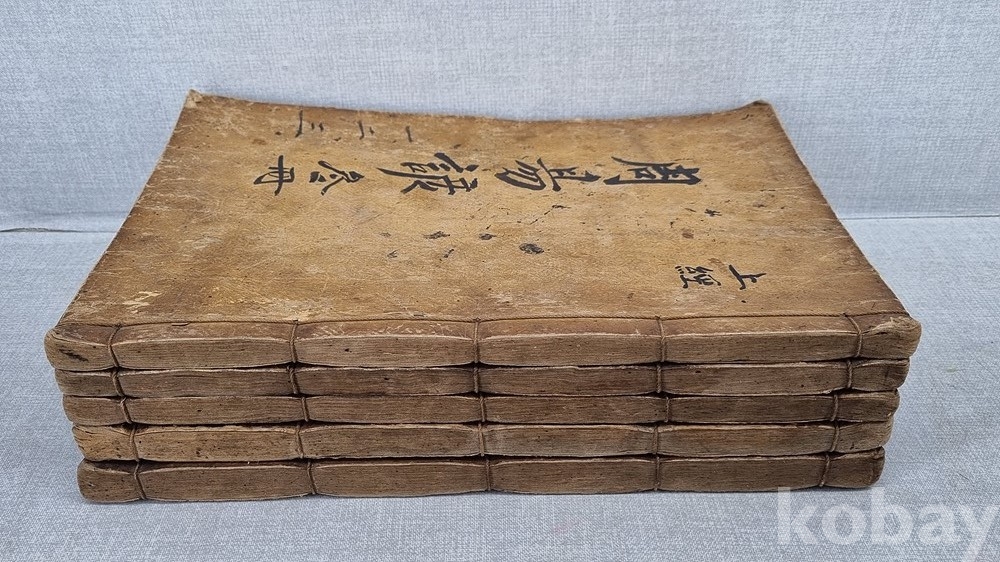 一 二 三
周易諺 冊
上經
kobay